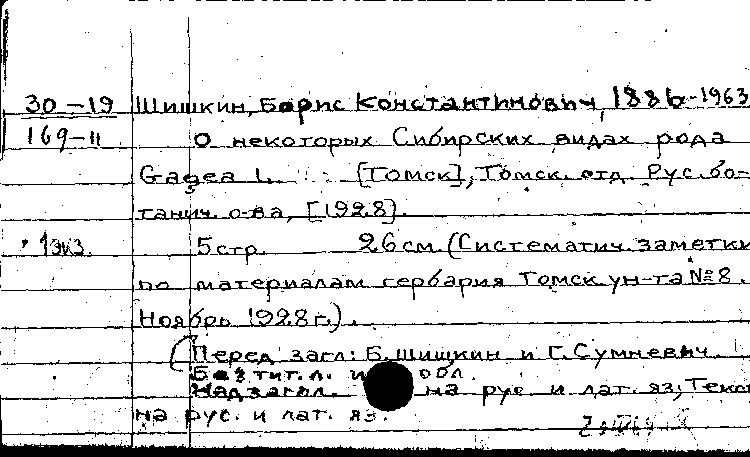 30-19 Шишкин, Борис Константинович, 1886-1963
169-11 О некоторых Сибирских видах рода
Gagea L. [Томск], Томск. отд. Рус. бо-
танич. о-ва, [1928].
1экз. 5 стр. 26 см. (Систематич. заметки
по материалам гербария Томск ун-та №8.
Ноябрь 1928 г.).
(Перед загл: Б. Шишкин и Г. Сумневич.
Без тит. л. и обл.
Надзагол. на рус и лат. яз; Текс
на рус. и лат. яз.